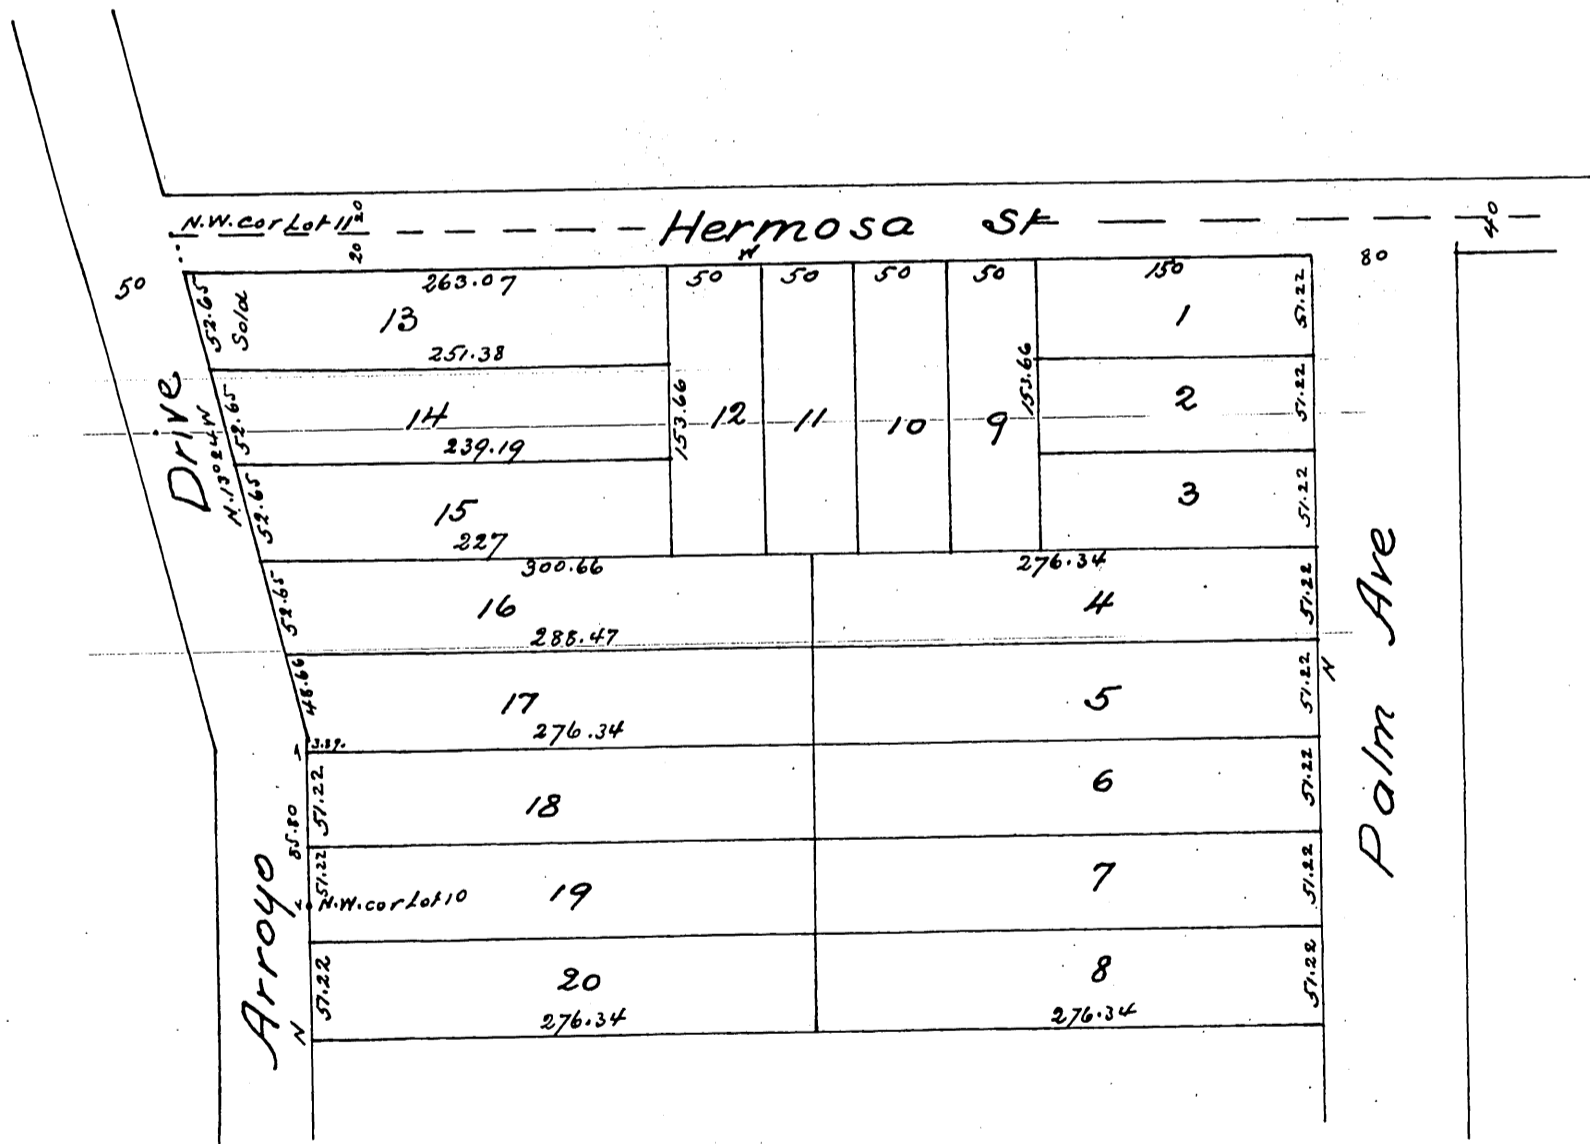 N.W. cor Lot 11
20
20
Hermosa St
40
50
263.07
50
W
50
50
50
150
80
52.65
Sold
13
251.38
1
51.22
Drive
N.13°24'W
52.65
14
239.19
153.66
12
11
10
9
153.66
2
51.22
52.65
15
227
3
51.22
300.66
276.34
52.65
16
288.47
4
51.22
48.66
17
276.34
5
51.22
N
Palm Ave
3.89
85.80
51.22
18
6
51.22
51.22
N.W. cor Lot 10
19
7
51.22
Arroyo
N
51.22
20
276.34
8
276.34
51.22